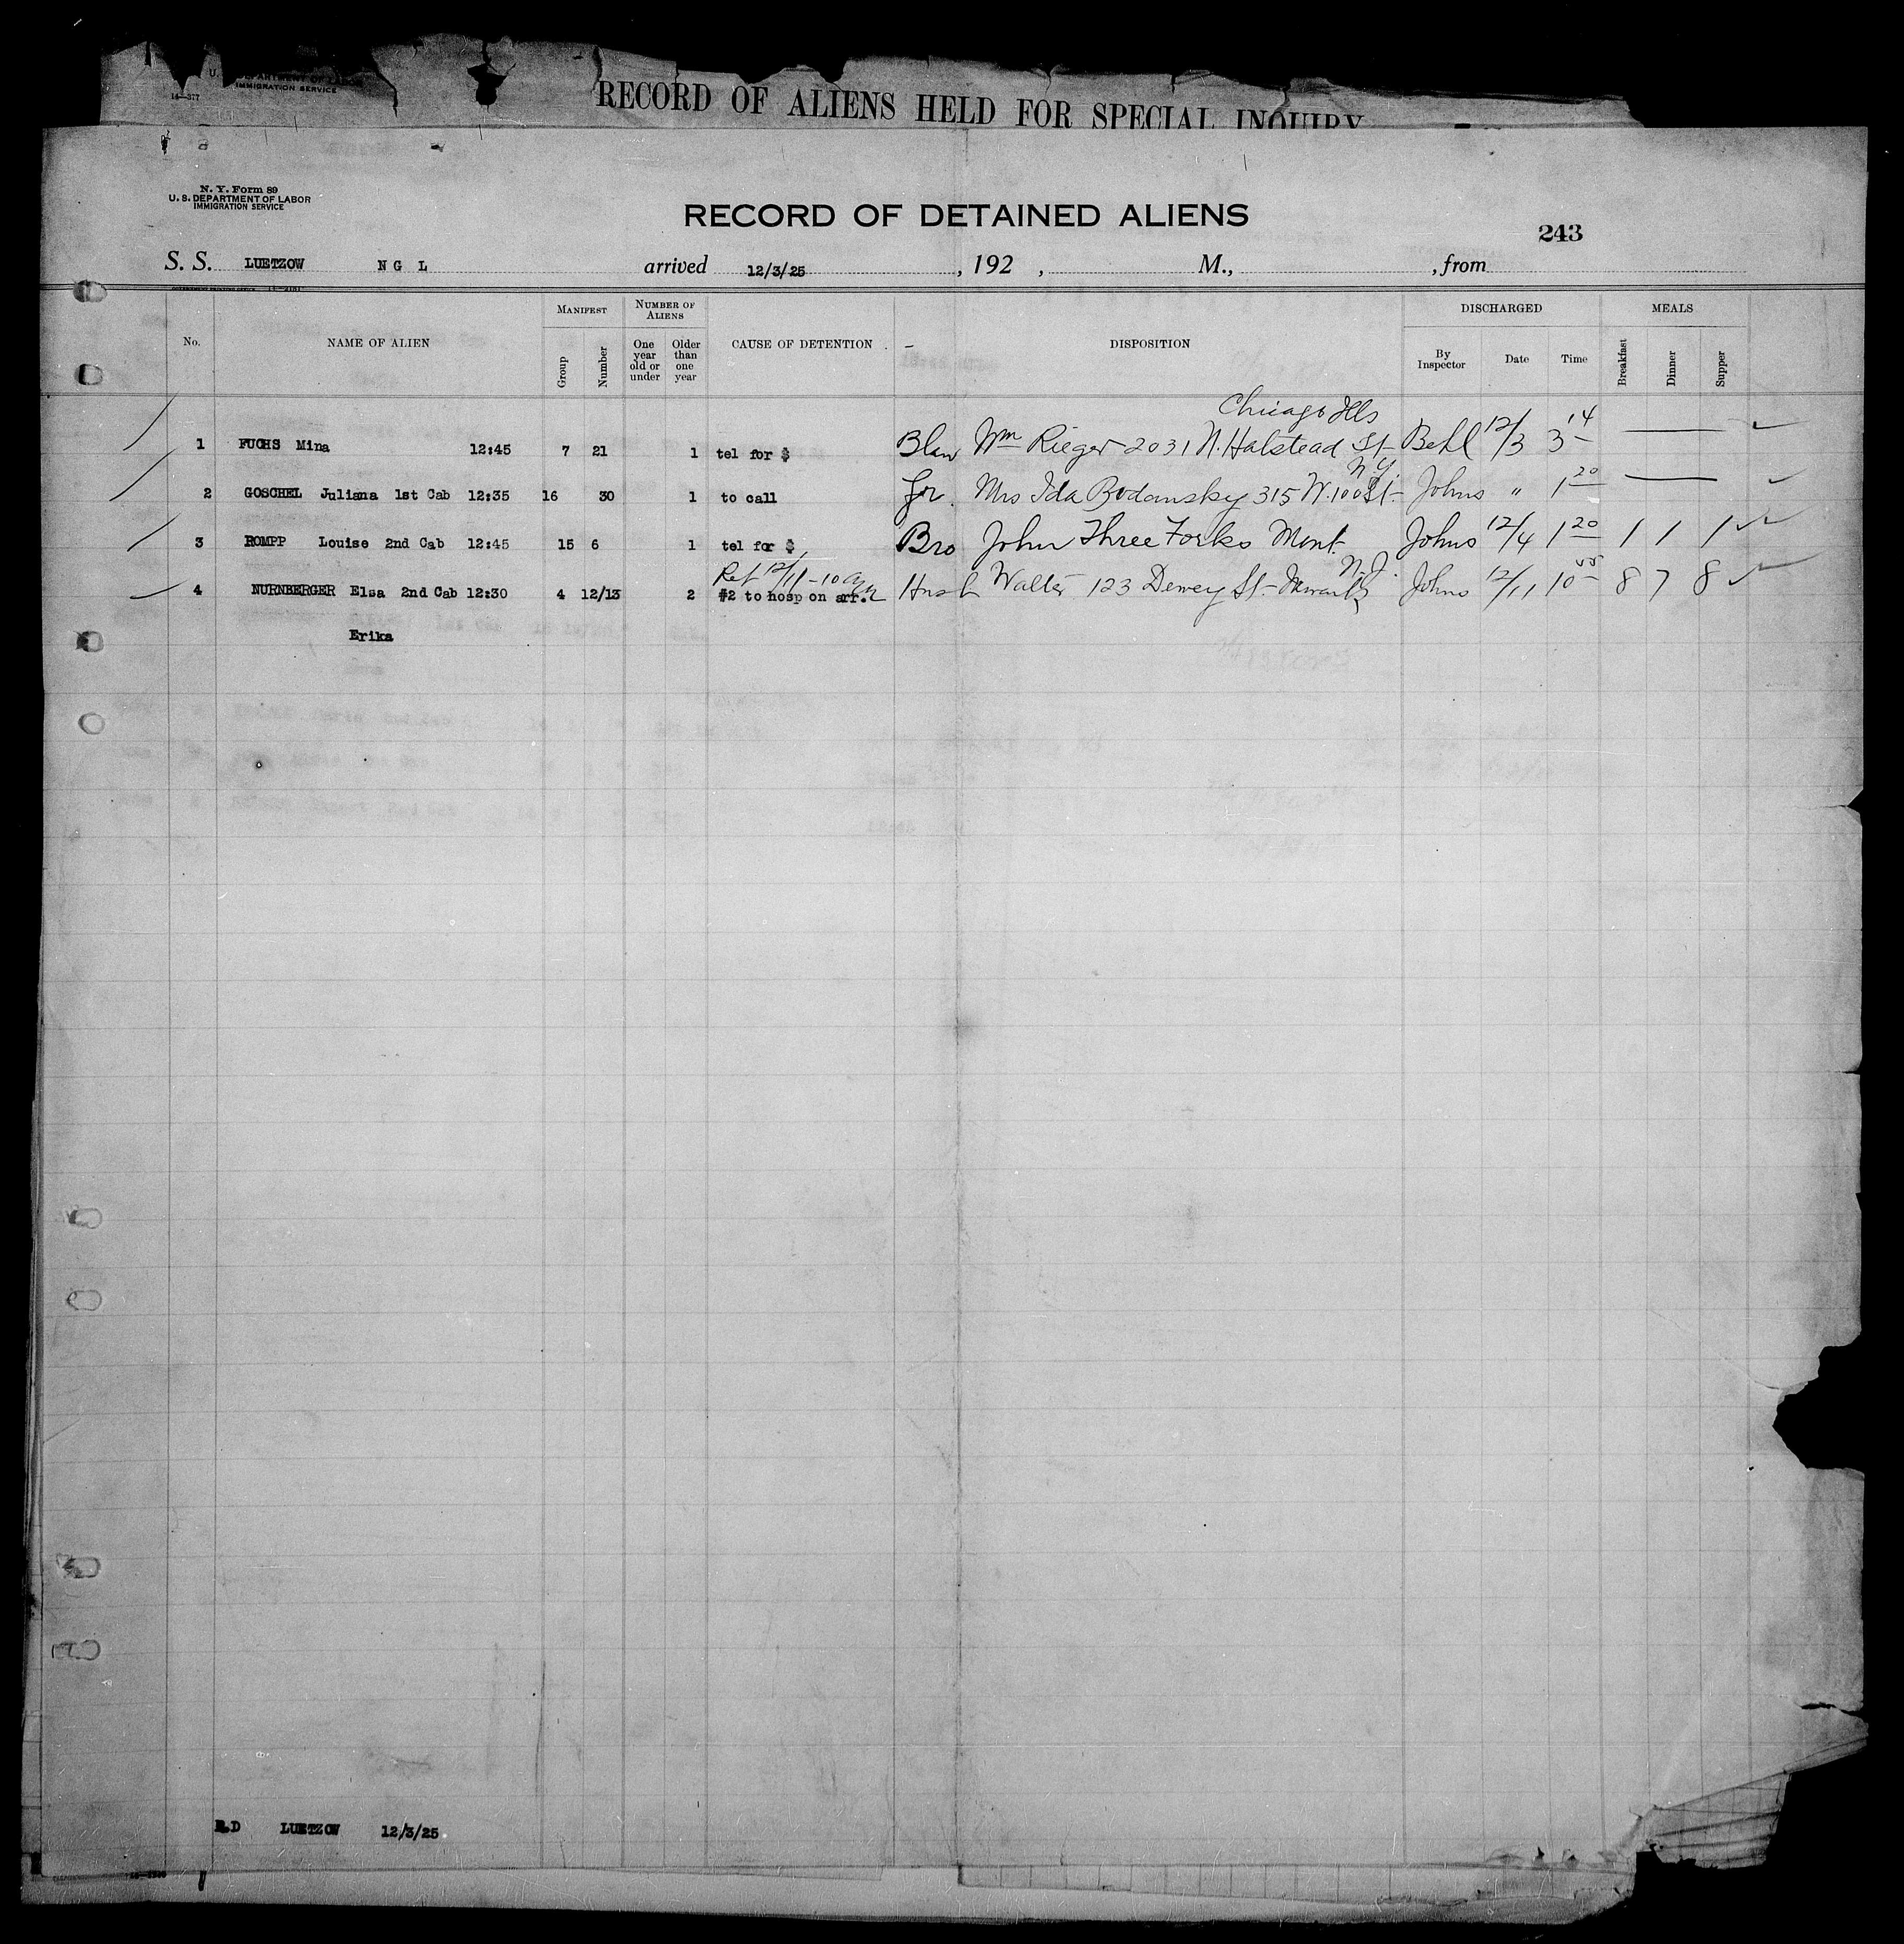 U. S. DEPARTMENT OF LA
IMMIGRATION SERVICE
14—377
RECORD OF ALIENS HELD FOR SPECIAL INQUIRY
N. Y. Form 89
U. S. DEPARTMENT OF LABOR
IMMIGRATION SERVICE
RECORD OF DETAINED ALIENS
243
S. S. LUETZOW N G L arrived 12/3/25, 192 , M., , from
No. NAME OF ALIEN MANIFEST Group Number NUMBER OF ALIENS One year old or under Older than one year CAUSE OF DETENTION DISPOSITION DISCHARGED By Inspector Date Time MEALS Breakfast Dinner Supper
Chicago Ills
1 FUCHS Mina 12:45 7 21 1 tel for $ Blaw Wm Rieger 2031 N. Halstead St- Behl 12/3 3 14
N.Y.
2 GOSCHEL Juliana 1st Cab 12:35 16 30 1 to call fr. Mrs Ida Bodansky 315 W. 100 St- Johns " 1 20
3 ROMPP Louise 2nd Cab 12:45 15 6 1 tel for $ Bro John Three Forks Mont. Johns 12/4 1 20 1 1 1
Ret 12/11-10 am N.J.
4 NURNBERGER Elsa 2nd Cab 12:30 4 12/13 2 #2 to hosp on arr. Husb Walter 123 Dewey St- Newark Johns 12/11 10 55 8 7 8
Erika
R.D LUETZOW 12/3/25